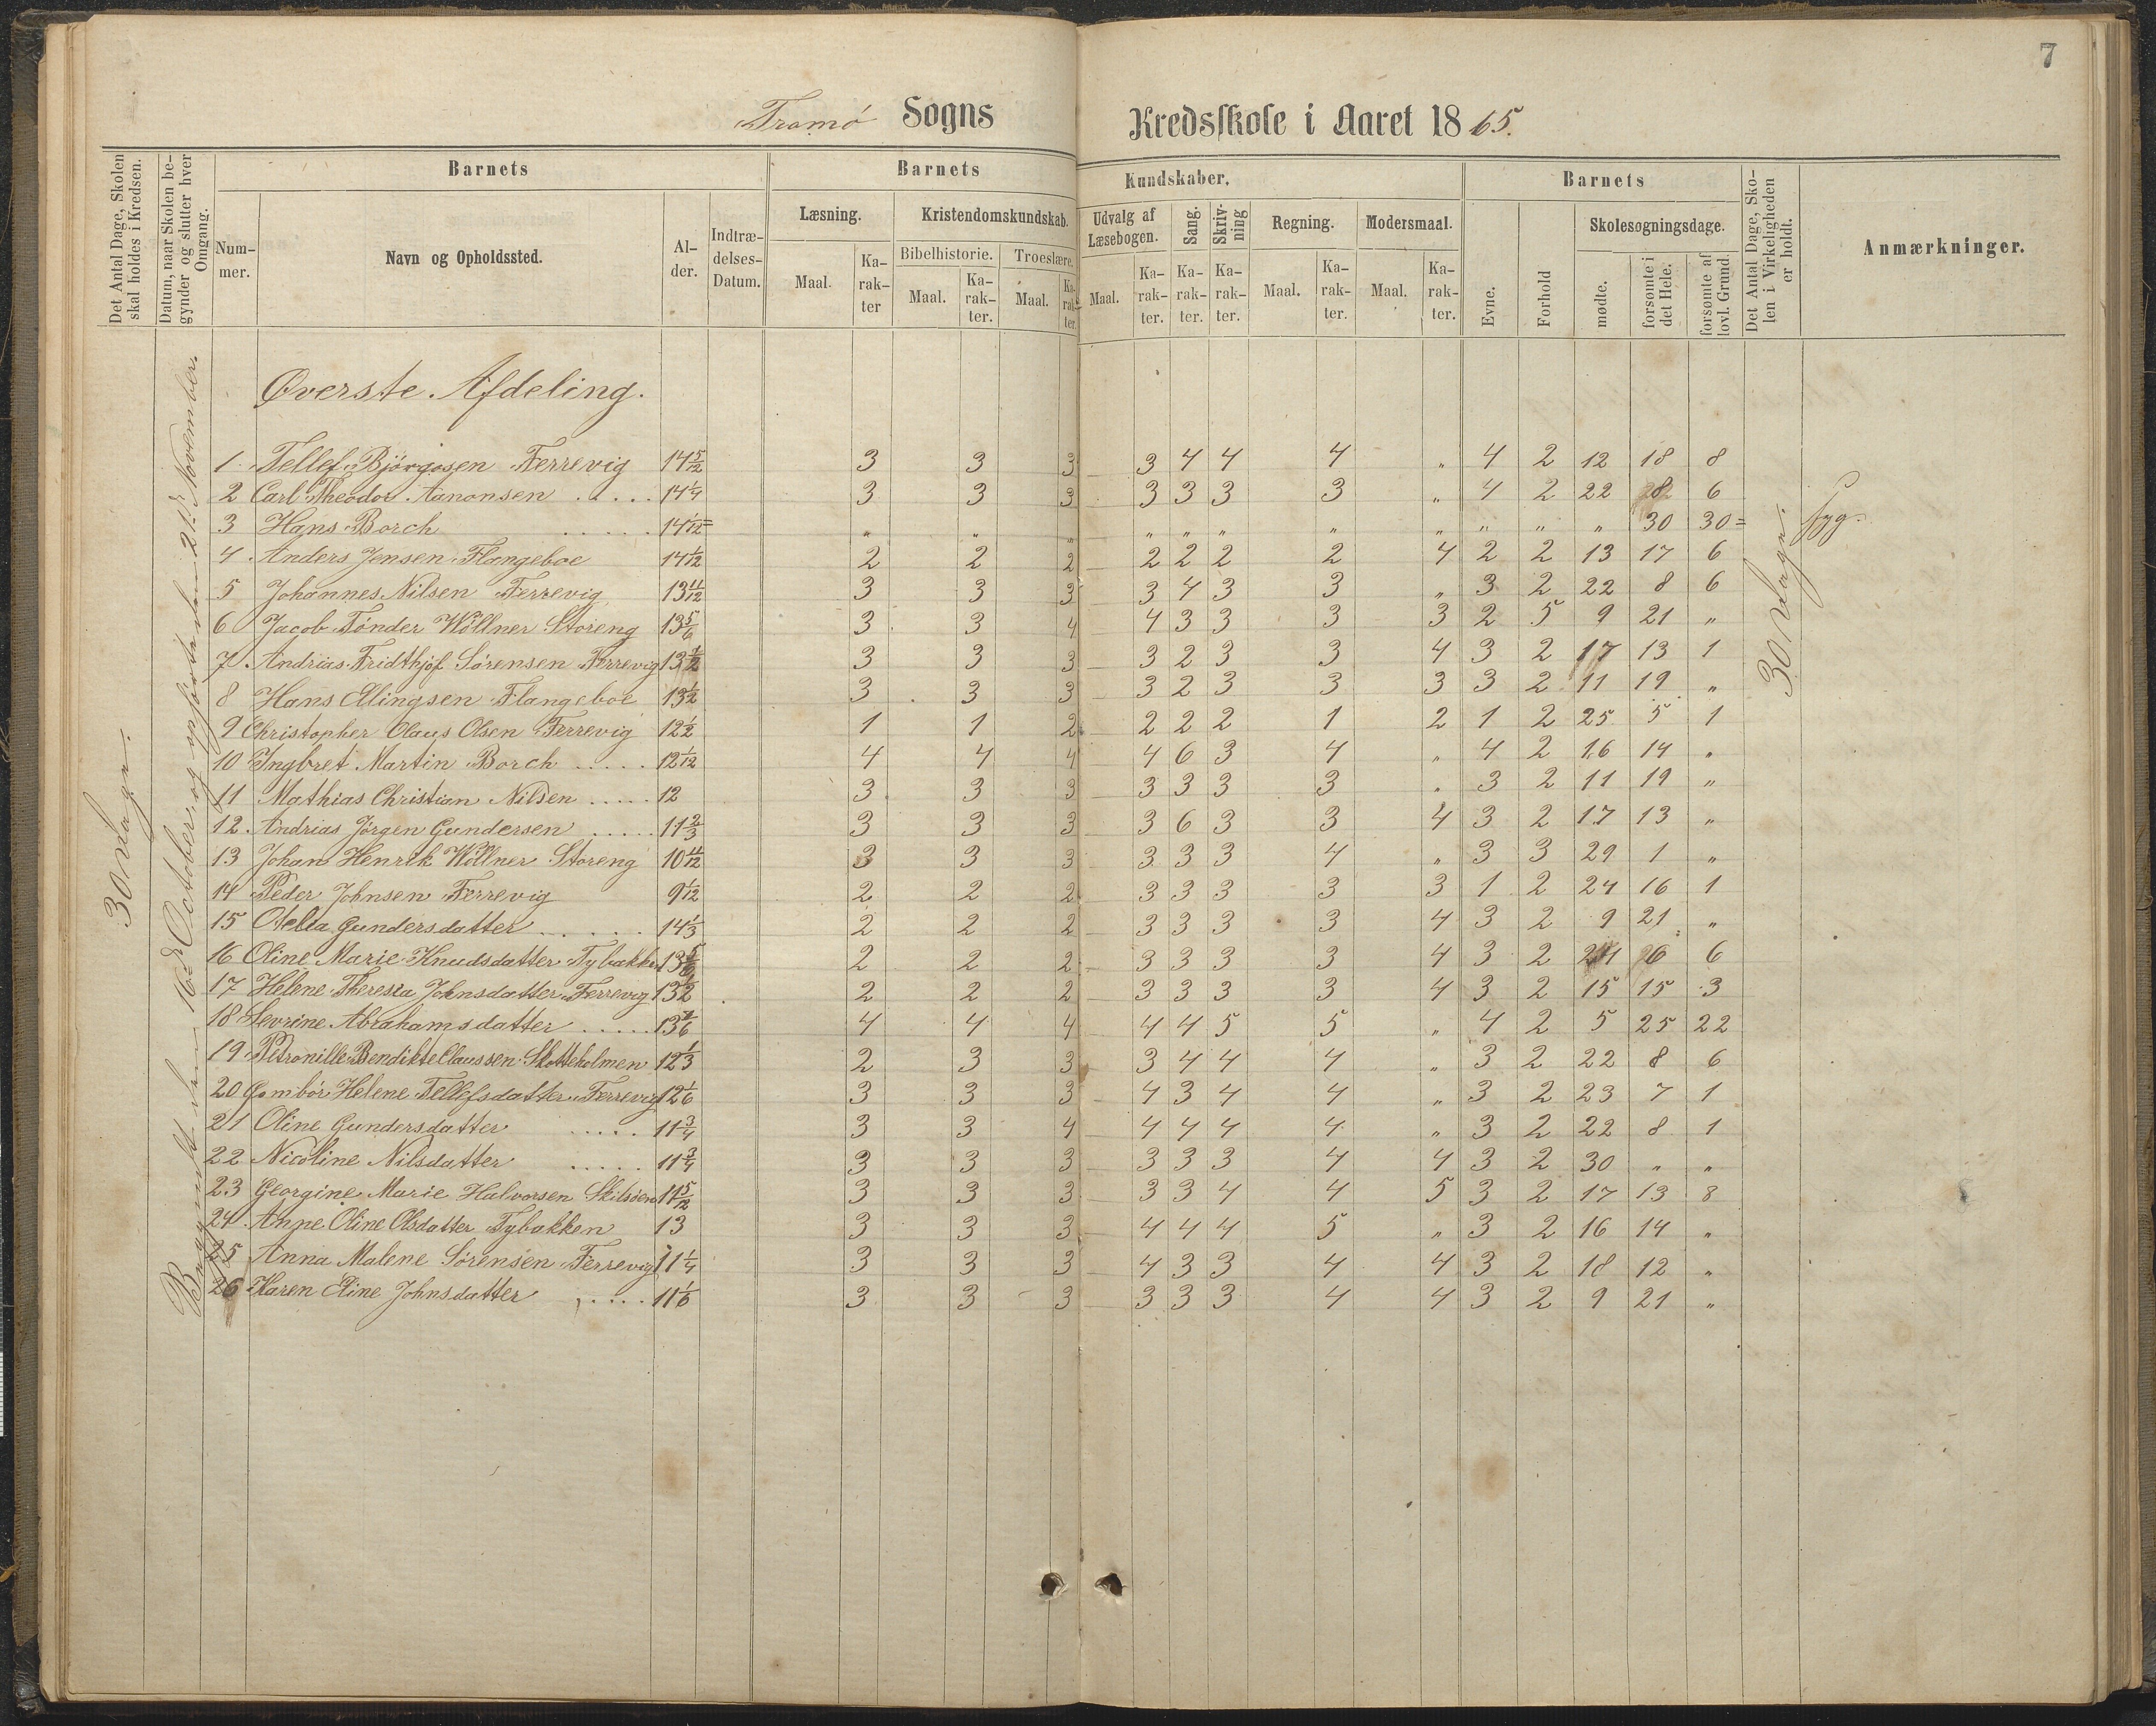 7
Tromø Sogns Kredsskole i Aaret 1865.
Det Antal Dage, Skolen skal holdes i Kredsen.
Datum, naar Skolen begynder og slutter hver Omgang.
Barnets
Nummer.
Navn og Opholdssted.
Alder.
Indtrædelses-Datum.
Barnets Kundskaber.
Læsning.
Maal.
Karakter
Kristendomskundskab.
Bibelhistorie.
Maal.
Karakter.
Troeslære.
Maal.
Karakter.
Udvalg af Læsebogen.
Maal.
Karakter.
Sang.
Karakter.
Skrivning
Karakter.
Regning.
Maal.
Karakter.
Modersmaal.
Maal.
Karakter.
Barnets
Evne.
Forhold
Skolesøgningsdage.
mødte.
forsømte i det Hele.
forsømte af lovl. Grund.
Det Antal Dage, Skolen i Virkeligheden er holdt.
Anmærkninger.
30 Dage.
Begyndt den 16de October og ophørte den 21de November.
Øverste Afdeling.
1 Tellef Bjørgosen Færrevig 14 5/12 3 3 3 3 4 4 4 " 4 2 12 18 8
2 Carl Theodor Aanonsen ..... 14 1/4 3 3 3 3 3 3 3 " 4 2 22 8 6
3 Hans Borch ..... 14 1/12 = " " " " " " " " " " " 30 30 = syg.
4 Anders Jensen Flangeboe 14 1/12 2 2 2 2 2 2 2 4 2 2 13 17 6
5 Johannes Nilsen Færrevig 13 11/12 3 3 3 3 4 3 3 " 3 2 22 8 6
6 Jacob Tønder Wöllner Storeng 13 5/6 3 3 4 4 3 3 3 3 2 5 9 21 "
7 Andrias Fridthjof Sørensen Færrevig 13 1/2 3 3 3 3 2 3 3 4 3 2 17 13 1
8 Hans Ellingsen Flangeboe 13 1/2 3 3 3 3 2 3 3 3 3 2 11 19 "
9 Christopher Olaus Olsen Færrevig 12 1/2 1 1 2 2 2 2 1 2 1 2 25 5 1
10 Ingbret Martin Borch ..... 12 1/12 4 4 4 4 6 3 4 " 4 2 16 14 "
11 Mathias Christian Nilsen ..... 12 3 3 3 3 3 3 3 " 3 2 11 19 "
12 Andrias Jørgen Gundersen ..... 11 2/3 3 3 3 3 6 3 3 4 3 2 17 13 "
13 Johan Henrik Wöllner Storeng 10 11/12 3 3 3 3 3 3 4 " 3 3 29 1 "
14 Peder Johnsen Færrevig 9 1/12 2 2 2 3 3 3 3 3 1 2 24 16 1
15 Otelia Gundersdatter ..... 14 1/3 2 2 2 3 3 3 3 4 3 2 9 21 "
16 Oline Marie Knudsdatter Tybakken 13 5/6 2 2 2 3 3 3 3 4 3 2 24 6 6
17 Helene Theresia Johnsdatter Færrevig 13 1/2 2 2 2 3 3 3 3 4 3 2 15 15 3
18 Sevrine Abrahamsdatter ..... 13 1/6 4 4 4 4 4 5 5 " 4 2 5 25 22
19 Petronille Bendikte Claussen Skotteholmen 12 1/3 2 3 3 3 4 4 4 " 3 2 22 8 6
20 Gombør Helene Tellefsdatter Færrevig 12 1/6 3 3 3 4 3 4 4 " 3 2 23 7 1
21 Oline Gundersdatter ..... 11 3/4 3 3 4 4 4 4 4 " 3 2 22 8 1
22 Nicoline Nilsdatter ..... 11 3/4 3 3 3 3 3 3 4 4 3 2 30 " "
23 Georgine Marie Halvorsen Skilsøen 11 5/12 3 3 3 3 3 4 4 5 3 2 17 13 8
24 Anne Oline Olsdatter Tybakken 13 3 3 3 4 4 4 5 " 3 2 16 14 "
25 Anna Malene Sørensen Færrevig 11 1/4 3 3 3 4 3 3 4 4 3 2 18 12 "
26 Karen Eline Johnsdatter ..... 11 1/6 3 3 3 3 3 3 4 4 3 2 9 21 "
30 Dage.